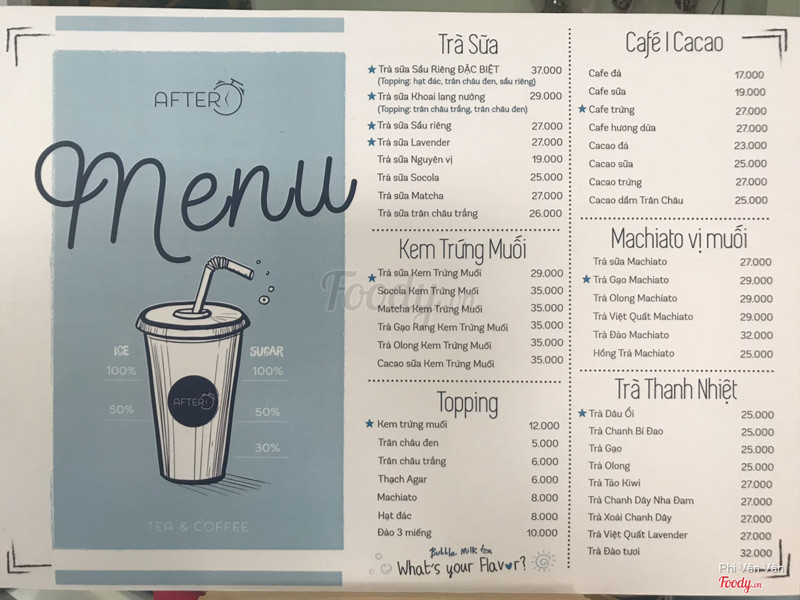 AFTER
Menu
ICE
SUGAR
100%
100%
50%
50%
30%
AFTER
TEA & COFFEE
Trà Sữa
★ Trà sữa Sầu Riêng ĐẶC BIỆT 37.000
(Topping: hạt đác, trân châu đen, sầu riêng)
★ Trà sữa Khoai lang nướng 29.000
(Topping: trân châu trắng, trân châu đen)
★ Trà sữa Sầu riêng 27.000
★ Trà sữa Lavender 27.000
Trà sữa Nguyên vị 19.000
Trà sữa Socola 25.000
Trà sữa Matcha 27.000
Trà sữa trân châu trắng 26.000
Kem Trứng Muối
★ Trà sữa Kem Trứng Muối 29.000
Socola Kem Trứng Muối 35.000
Matcha Kem Trứng Muối 35.000
Trà Gạo Rang Kem Trứng Muối 35.000
Trà Olong Kem Trứng Muối 35.000
Cacao sữa Kem Trứng Muối 35.000
Topping
★ Kem trứng muối 12.000
Trân châu đen 5.000
Trân châu trắng 6.000
Thạch Agar 6.000
Machiato 8.000
Hạt đác 8.000
Đào 3 miếng 10.000
Bubble Milk tea
What's your Flavor?
Café | Cacao
Cafe đá 17.000
Cafe sữa 19.000
★ Cafe trứng 27.000
Cafe hương dừa 27.000
Cacao đá 23.000
Cacao sữa 25.000
Cacao trứng 27.000
Cacao dầm Trân Châu 25.000
Machiato vị muối
Trà sữa Machiato 27.000
★ Trà Gạo Machiato 29.000
Trà Olong Machiato 29.000
Trà Việt Quất Machiato 29.000
Trà Đào Machiato 32.000
Hồng Trà Machiato 25.000
Trà Thanh Nhiệt
★ Trà Dâu Ổi 25.000
Trà Chanh Bí Đao 25.000
Trà Gạo 25.000
Trà Olong 25.000
Trà Táo Kiwi 27.000
Trà Chanh Dây Nha Đam 27.000
Trà Xoài Chanh Dây 27.000
Trà Việt Quất Lavender 27.000
Trà Đào tươi 32.000
Foody.vn
Phi Vân Vân
Foody.vn